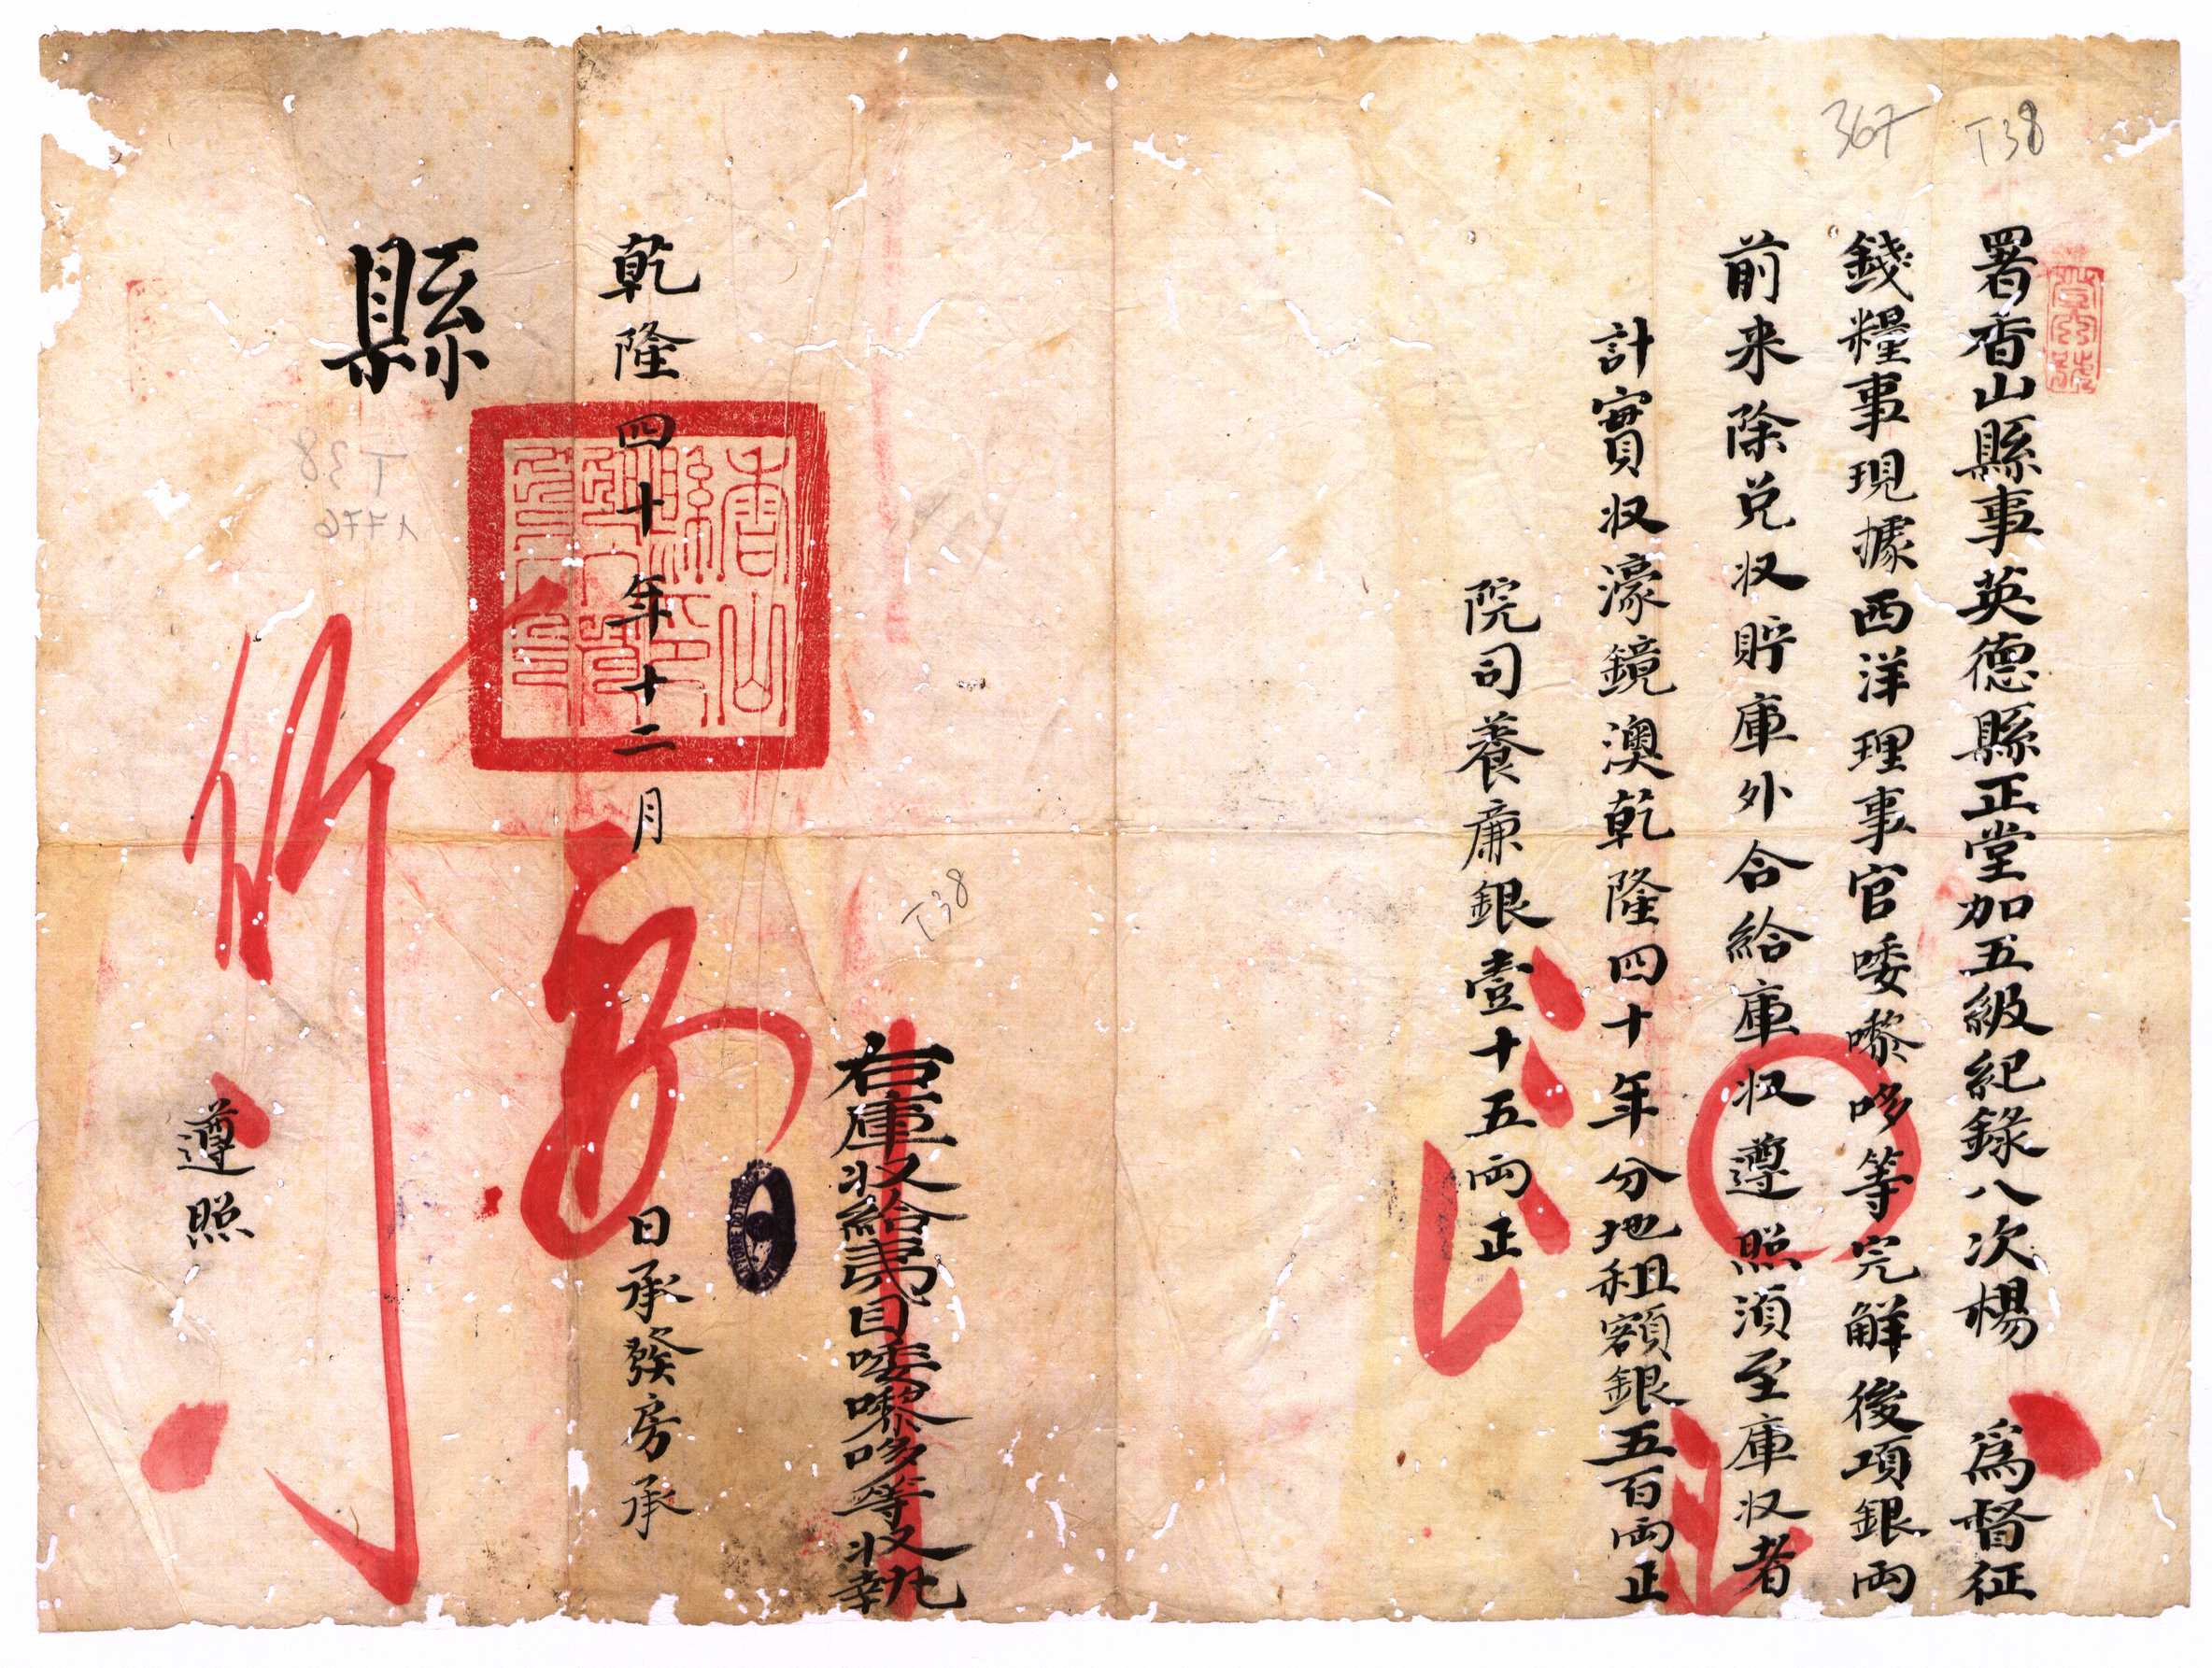 T38
367
署香山縣事英德縣正堂加五級紀錄八次楊 爲督征
錢糧事現據西洋理事官喽嚟哆等完觧後項銀両
前来除兑収貯庫外合給庫収遵照湏至庫収者
計實収濠鏡澳乾隆四十年分地租額銀五百両正
院司養廉銀壹十五両正
右庫収給夷目喽嚟哆等収執
T38
乾隆四十年十二月 日承發房承
香山縣印
縣
行
遵照
T38
1776